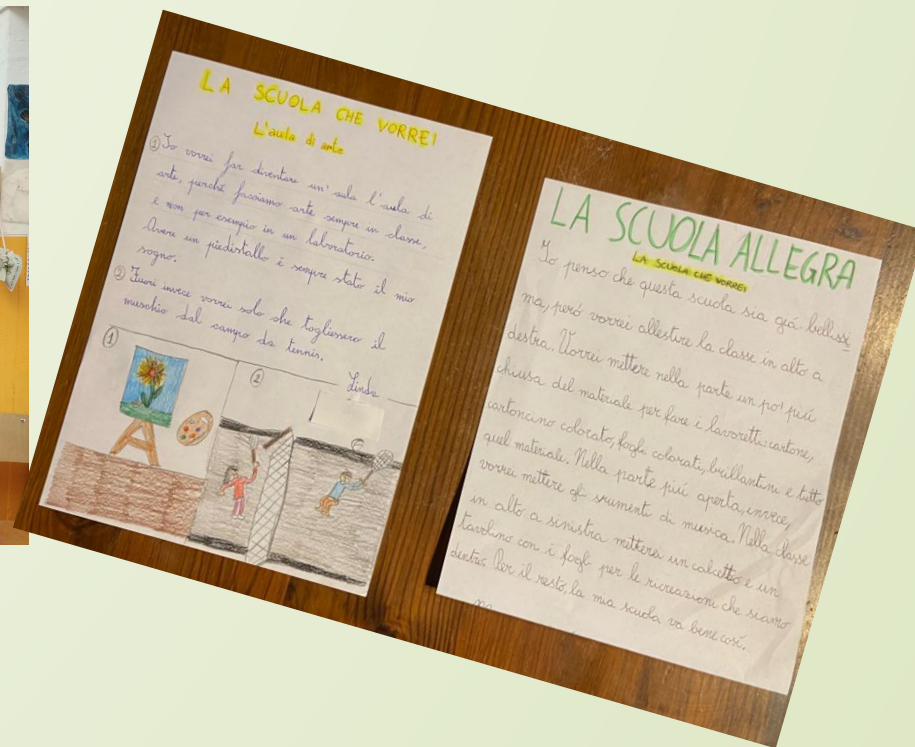 LA SCUOLA CHE VORREI
L'aula di arte
① Io vorrei far diventare un'aula l'aula di
arte, perché facciamo arte sempre in classe,
e non per esempio in un laboratorio.
Avere un piedistallo è sempre stato il mio
sogno.
② Fuori invece vorrei solo che togliessero il
muschio dal campo da tennis.
Linda
①
②
LA SCUOLA ALLEGRA
LA SCUOLA CHE VORREI
Io penso che questa scuola sia già bellissi
ma, però vorrei allestire la classe in alto a
destra. Vorrei mettere nella parte un po' più
chiusa del materiale per fare i lavoretti: cartone,
cartoncino colorato, fogli colorati, brillantini e tutto
quel materiale. Nella parte più aperta, invece,
vorrei mettere gli srumenti di musica. Nella classe
in alto a sinistra metterei un calcetto e un
tavolino con i fogli per le ricreazioni che siamo
dentro. Per il resto, la mia scuola va bene così.